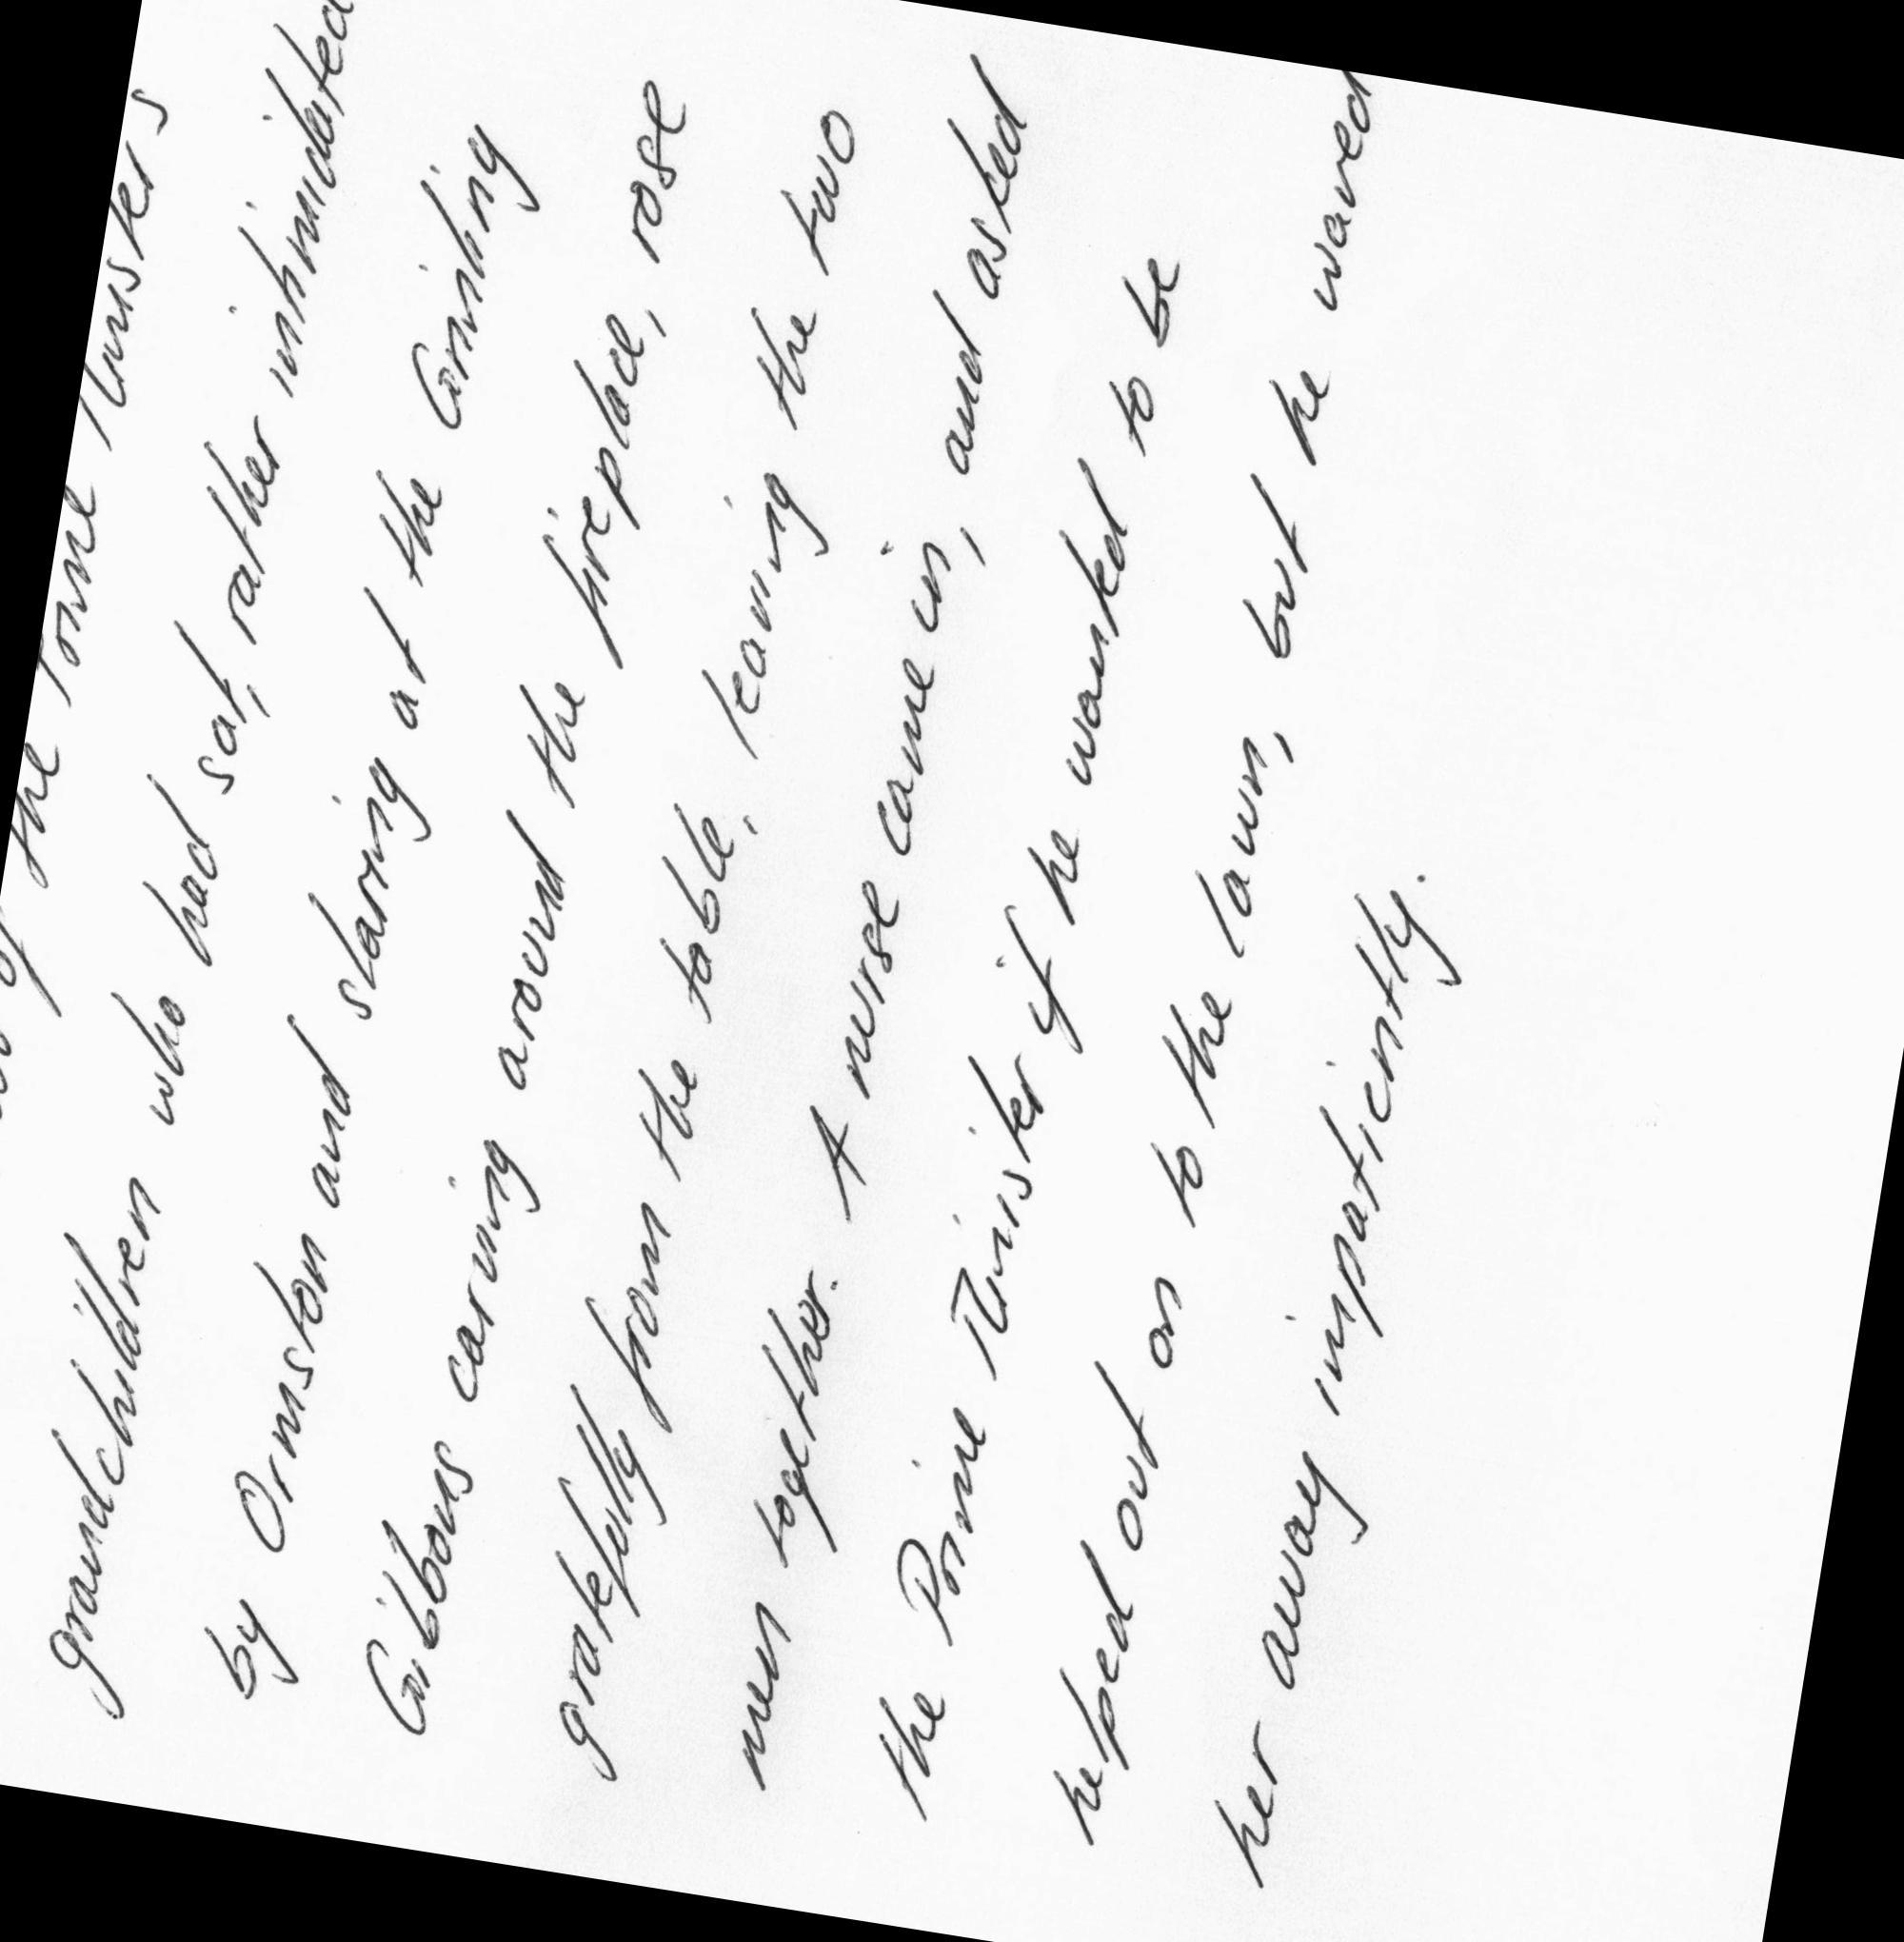 of the Prime Minister's
grandchildren who had sat, rather intimidated
by Ormston and staring at the Grinling
Gibbons carving around the fireplace, rose
gratefully from the table, leaving the two
men together. A nurse came in, and asked
the Prime Minister if he wanted to be
helped out on to the lawn, but he waved
her away impatiently.